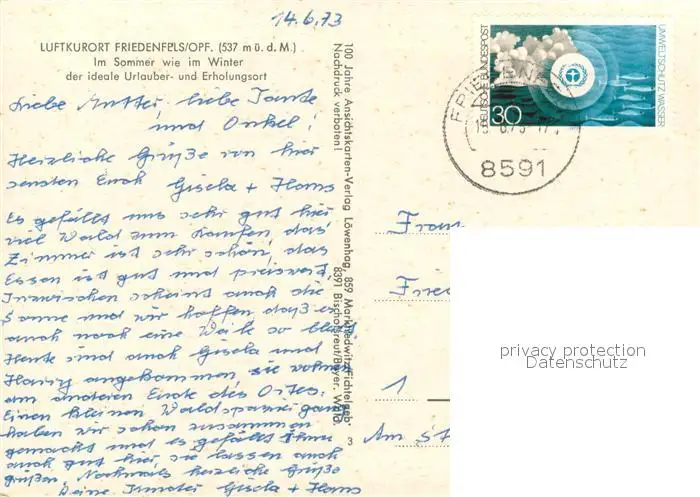 14.6.73
LUFTKURORT FRIEDENFELS/OPF. (537 m ü. d. M.)
Im Sommer wie im Winter
der ideale Urlauber- und Erholungsort
Liebe Mutter, liebe Tante
und Onkel!
Herzliche Grüße von hier
senden Euch Gisela + Hans
Es gefällt uns sehr gut hier
viel Wald zum Laufen, das
Zimmer ist sehr schön, das
Essen ist gut und preiswert.
Inzwischen scheint auch die
Sonne und wir hoffen, daß es
auch noch eine Weile so bleibt.
Heute sind auch Gisela und
angekommen, sie wohnen
am anderen Ende des Ortes.
Einen kleinen Waldspaziergang
haben wir schon zusammen
gemacht und es gefällt Ihnen
auch gut hier, sie lassen auch
grüßen. Nochmals herzliche Grüße
Deine Gisela + Hans
100 Jahre Ansichtskarten-Verlag Löwenhag 859 Marktredwitz/Fichtelgeb.
Nachdruck verboten! 8391 Bischofsreut/Bayer. Wald.
3
DEUTSCHE BUNDESPOST
30
UMWELTSCHUTZ WASSER
8591
Frau
Fried
1
Am St
privacy protection
Datenschutz